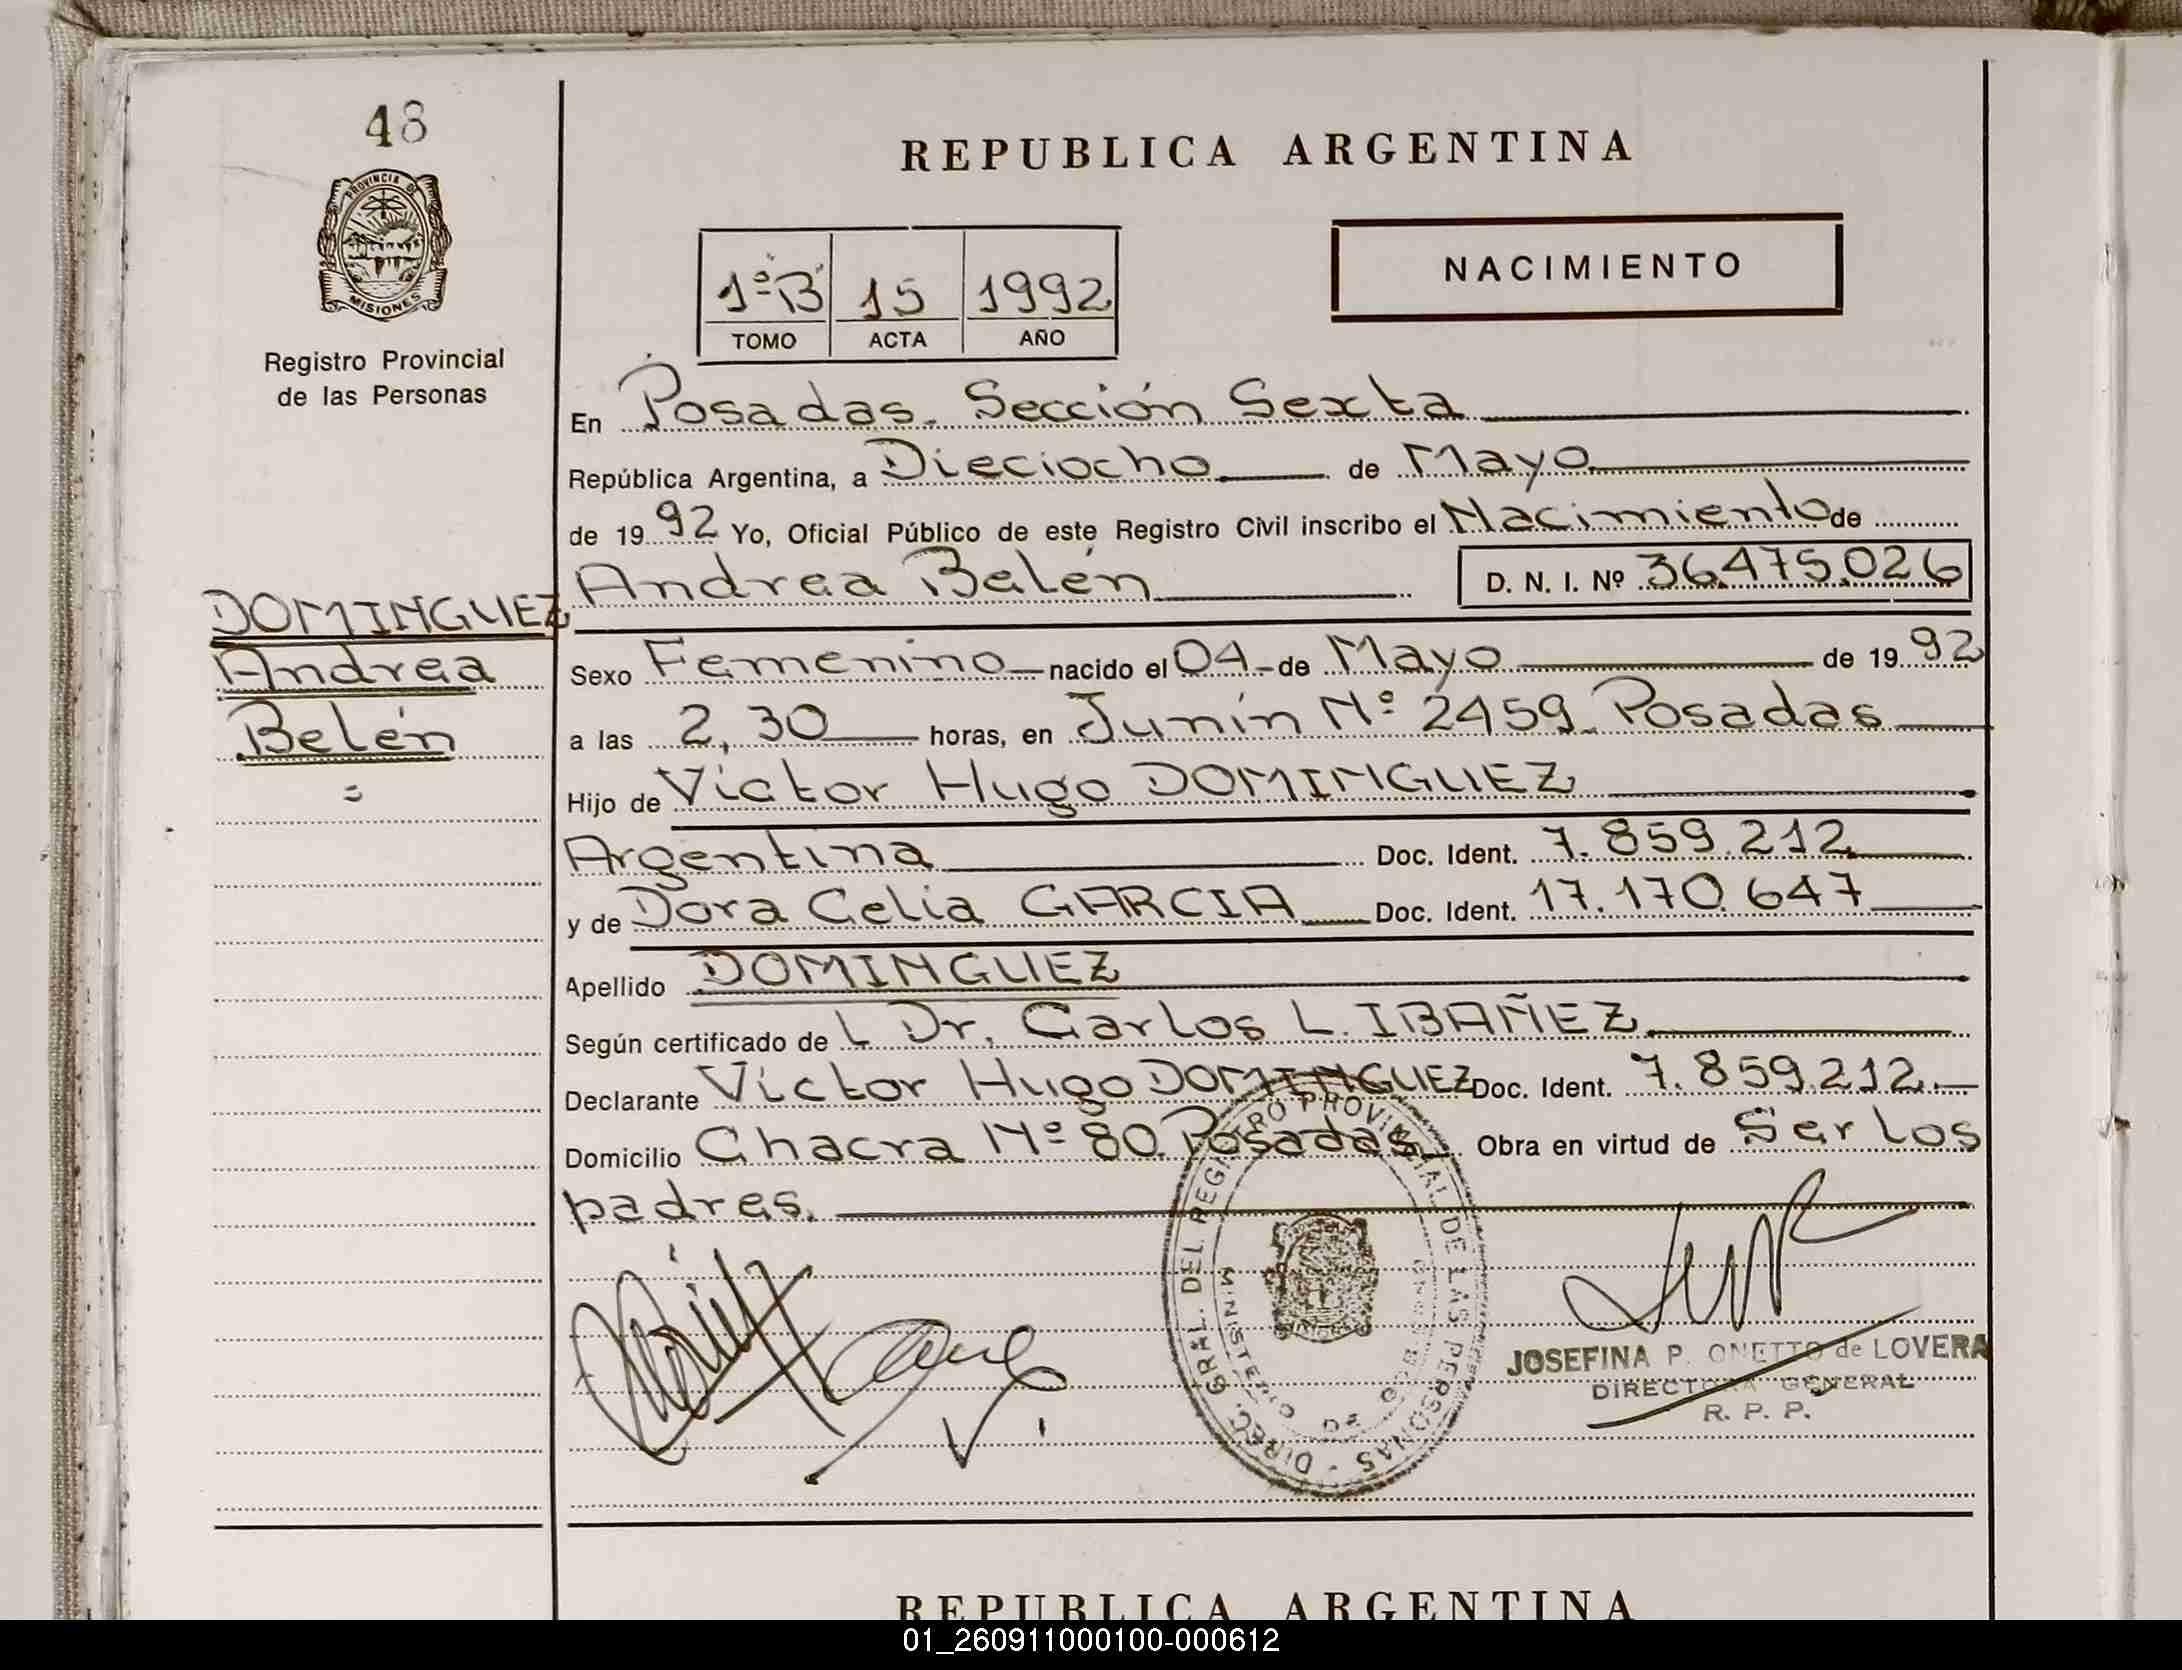 48
PROVINCIA DE
MISIONES
Registro Provincial
de las Personas
DOMINGUEZ
Andrea
Belén
=
REPUBLICA ARGENTINA
1º "B" 15 1992
TOMO ACTA AÑO
NACIMIENTO
En Posadas. Sección Sexta
República Argentina, a Dieciocho de Mayo
de 1992 Yo, Oficial Público de este Registro Civil inscribo el Nacimiento de
Andrea Belén D. N. I. Nº 36.475.026
Sexo Femenino nacido el 04 de Mayo de 1992
a las 2,30 horas, en Junín Nº 2459. Posadas
Hijo de Víctor Hugo DOMINGUEZ
Argentina Doc. Ident. 7.859.212
y de Dora Celia GARCIA Doc. Ident. 17.170.647
Apellido DOMINGUEZ
Según certificado de L Dr. Carlos L. IBAÑEZ
Declarante Víctor Hugo DOMINGUEZ Doc. Ident. 7.859.212.
Domicilio Chacra Nº 80. Posadas Obra en virtud de Ser los
padres.
DIREC. GRAL. DEL REGISTRO PROVINCIAL DE LAS PERSONAS
MINISTERIO DE GOBIERNO
JOSEFINA P. ONETTO de LOVERA
DIRECTORA GENERAL
R. P. P.
REPUBLICA ARGENTINA
01_260911000100-000612